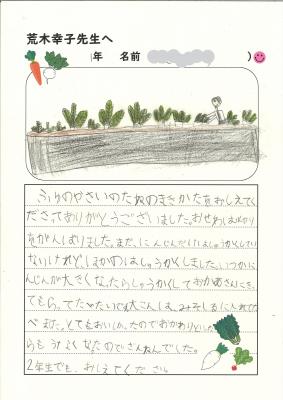 荒木幸子先生へ
年 名前 )
ふゆのやさいのたねのまきかたをおしえてく
ださってありがとうございました。おせわばかり
をがんばりました。まだ、にんじんだけはしゅうかくしてい
ないけれど、ほかのはしゅうかくしました。いつかに
んじんが大きくなったらしゅうかくして おかあさんに
てもらってたべたいです。大こんは、みそしるに入れてた
べました。とてもおいしかったのでおかわりといった
らもうなくなったのでざんねんでした。
2年生でも、おしえてください